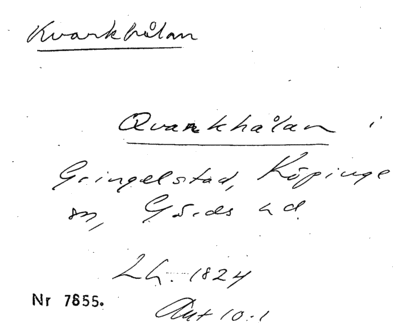 Kvarkhålan
Qvarkhålan i
Gringelstad, Köpinge
sn, Gärds hd.
Lh. 1824
Akt 10:1
Nr 7855.